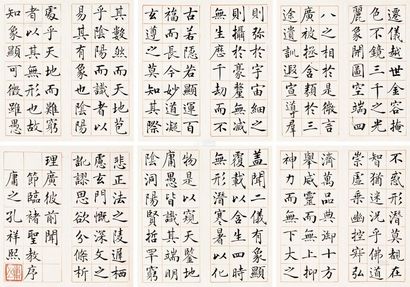 遷儀越世金容掩
色不鏡三千之光
麗象開圖空端四
八之相於是微言
廣被拯含類於三
途遺訓遐宣導群
則彌於宇宙細之
則攝於豪釐無滅
無生歷千劫而不
古若隱若顯運百
福而長今妙道凝
玄遵之莫知其際
其數然而天地苞
乎陰陽而識者以
易其有象也陰陽
處乎天地而難窮
者以其無形也故
知象顯可微雖愚
不惑形潛莫覩在
智猶迷況乎佛道
崇虛乘幽控寂弘
濟萬品典御十方
舉威靈而無上抑
神力而無下大之
蓋聞二儀有
覆載以含生四時
無形潛寒暑以化
物是以窺天鑒地
庸愚皆識其端明
陰洞陽賢哲罕窮
悲正法之陵遲棲
慮玄門慨深文之
訛謬思欲分條析
理廣彼前聞
節臨褚聖教序
庸之孔祥熙